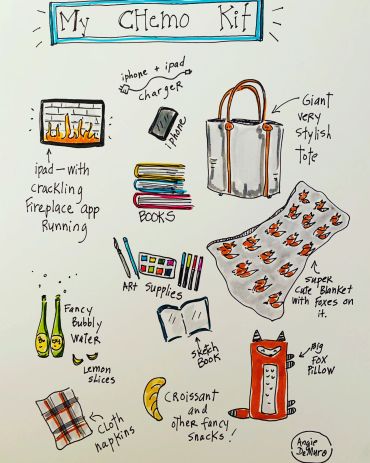 My CHemo Kit
iphone + ipad
charger
iphone
Giant
very
stylish
Tote
ipad - with
crackling
Fireplace app
Running
BOOKS
ART Supplies
super
cute Blanket
with Foxes on
it.
Fancy
Bubbly
Water
Lemon
slices
sketch
Book
Big
Fox
Pillow
Cloth
napkins
Croissant
and
other fancy
snacks!
Angie
DeMuro